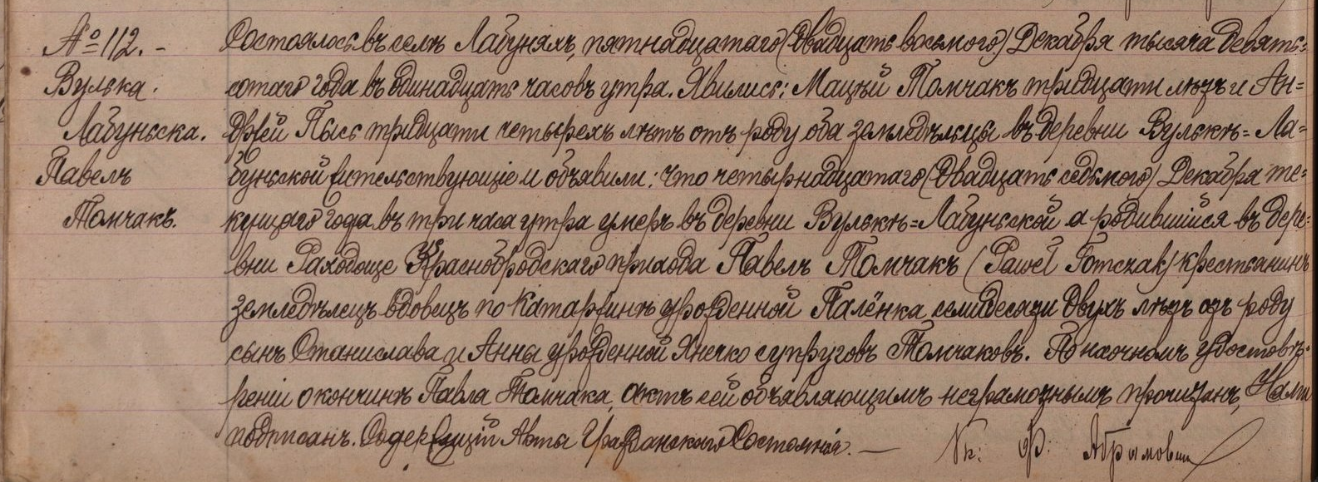 № 112. –
Вулька
Лабуньска.
Павелъ
Томчакъ.
Состоялось въ селѣ Лабуняхъ, пятнадцатаго (двадцать восьмого) Декабря тысяча девять=
сотаго года въ одинадцать часовъ утра. Явились: Мацѣй Томчакъ тридцати лѣтъ и Ан=
држей Пысь тридцати четырехъ лѣтъ отъ роду оба земледѣльцы въ деревни Вулькѣ=Ла=
буньской жительствующіе и объявили: что четырнадцатаго (двадцать седьмого) Декабря те=
кущаго года въ три часа утра умеръ въ деревни Вулькѣ=Лабуньской а родившійся въ дере=
вни Раходоще Краснобродскаго прихода Павелъ Томчакъ (Paweł Tomczak) крестьянинъ
земледѣлецъ вдовецъ по Катаржинѣ урожденной Палёнка семидесяти двухъ лѣтъ отъ роду
сынъ Станислава и Анны урожденной Хнечко супруговъ Томчаковъ. По наочномъ удостовѣ=
реніи о кончинѣ Павла Томчака, актъ сей объявляющимъ неграмотнымъ прочитанъ, Нами
подписанъ. Содержащій Акты Гражданскаго Состоянія. —
Кс: Ф: